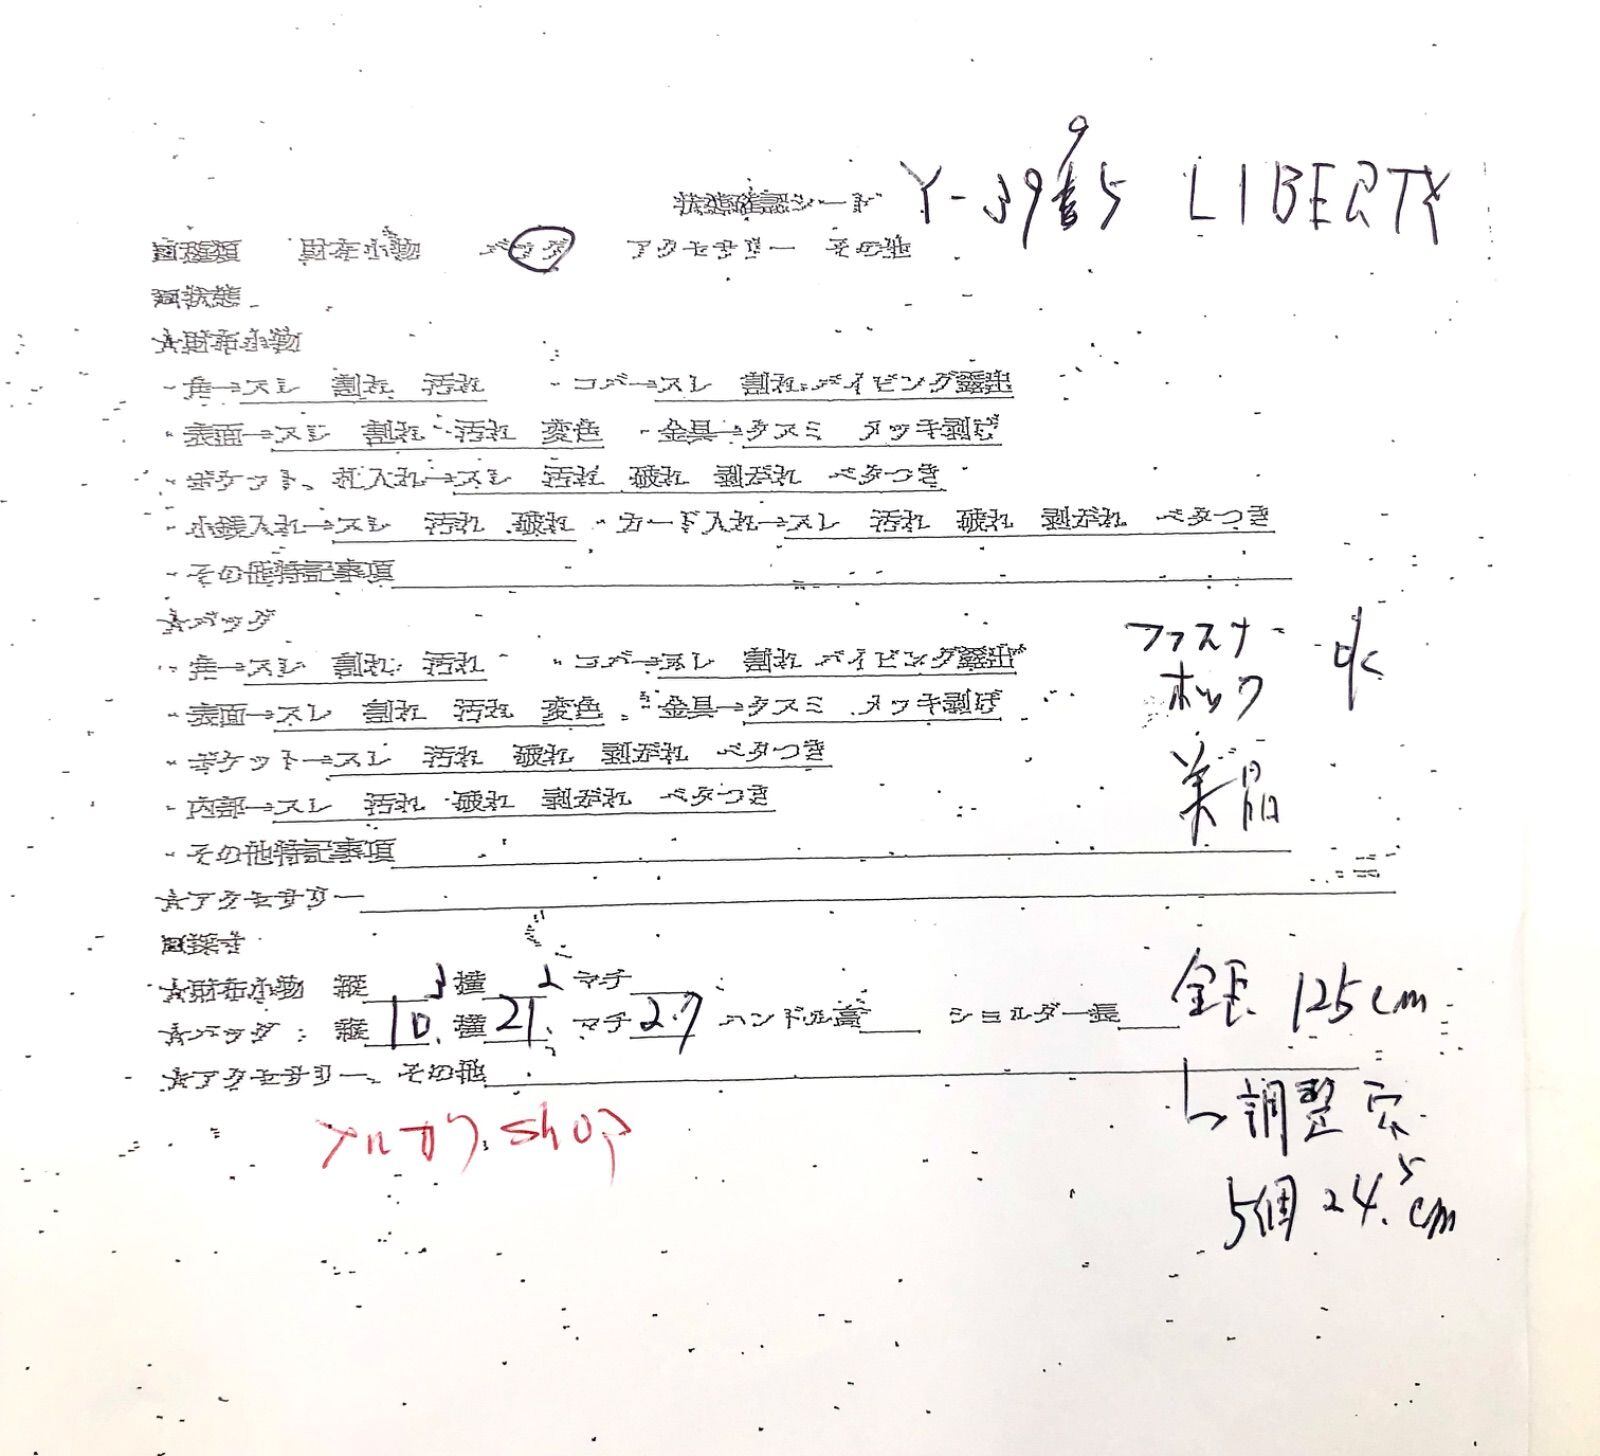 状態確認シート Y-3995 LIBERTY
■種類 財布小物 バッグ アクセサリー その他
■状態
☆財布小物
・角→スレ 割れ 汚れ ・コバ→スレ 割れ パイピング露出
・表面→スレ 割れ 汚れ 変色 ・金具→クスミ メッキ剥げ
・ポケット、札入れ→スレ 汚れ 破れ 剥がれ ベタつき
・小銭入れ→スレ 汚れ 破れ ・カード入れ→スレ 汚れ 破れ 剥がれ ベタつき
・その他特記事項
☆バッグ
ファスナー
・角→スレ 割れ 汚れ ・コバ→スレ 割れ パイピング露出
ホック
・表面→スレ 割れ 汚れ 変色 ・金具→クスミ メッキ剥げ
・ポケット→スレ 汚れ 破れ 剥がれ ベタつき
美品
・内部→スレ 汚れ 破れ 剥がれ ベタつき
・その他特記事項
☆アクセサリー
■採寸
☆財布小物 縦 横 マチ
☆バッグ: 縦10.3 横21.2 マチ2.7 ハンドル高 ショルダー長 全長 125cm
☆アクセサリー、その他
↳調整穴
メルカリ shop
5個 24.5cm